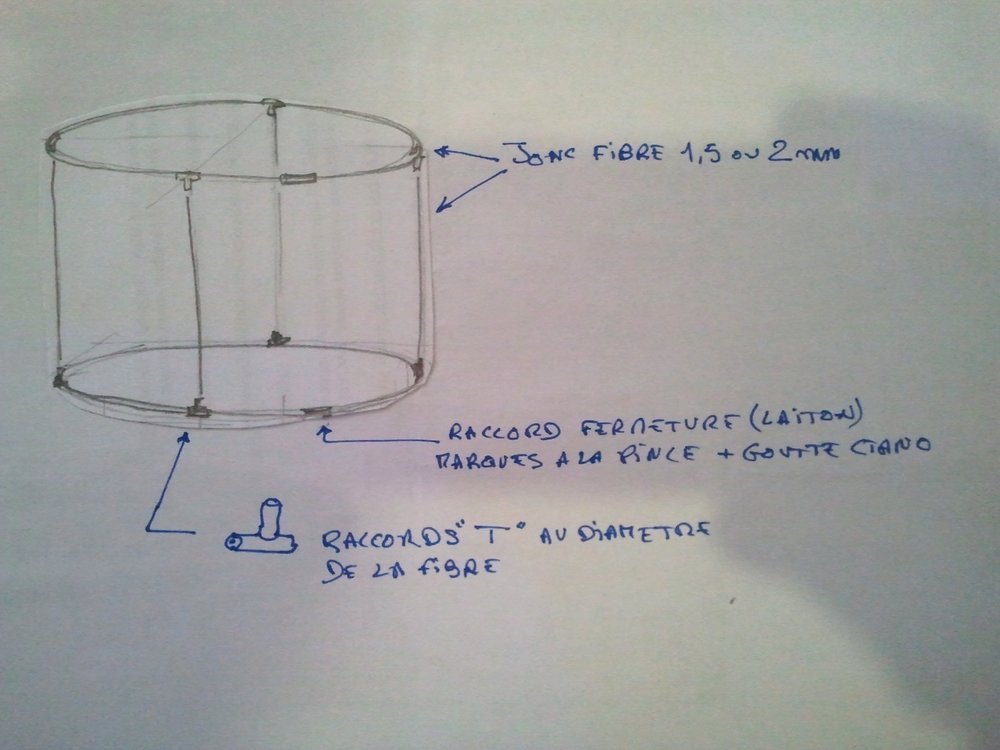 JONC FIBRE 1,5 OU 2 mm
RACCORD FERMETURE (LAITON)
MARQUES A LA PINCE + GOUTTE CIANO
RACCORDS "T" AU DIAMETRE
DE LA FIBRE